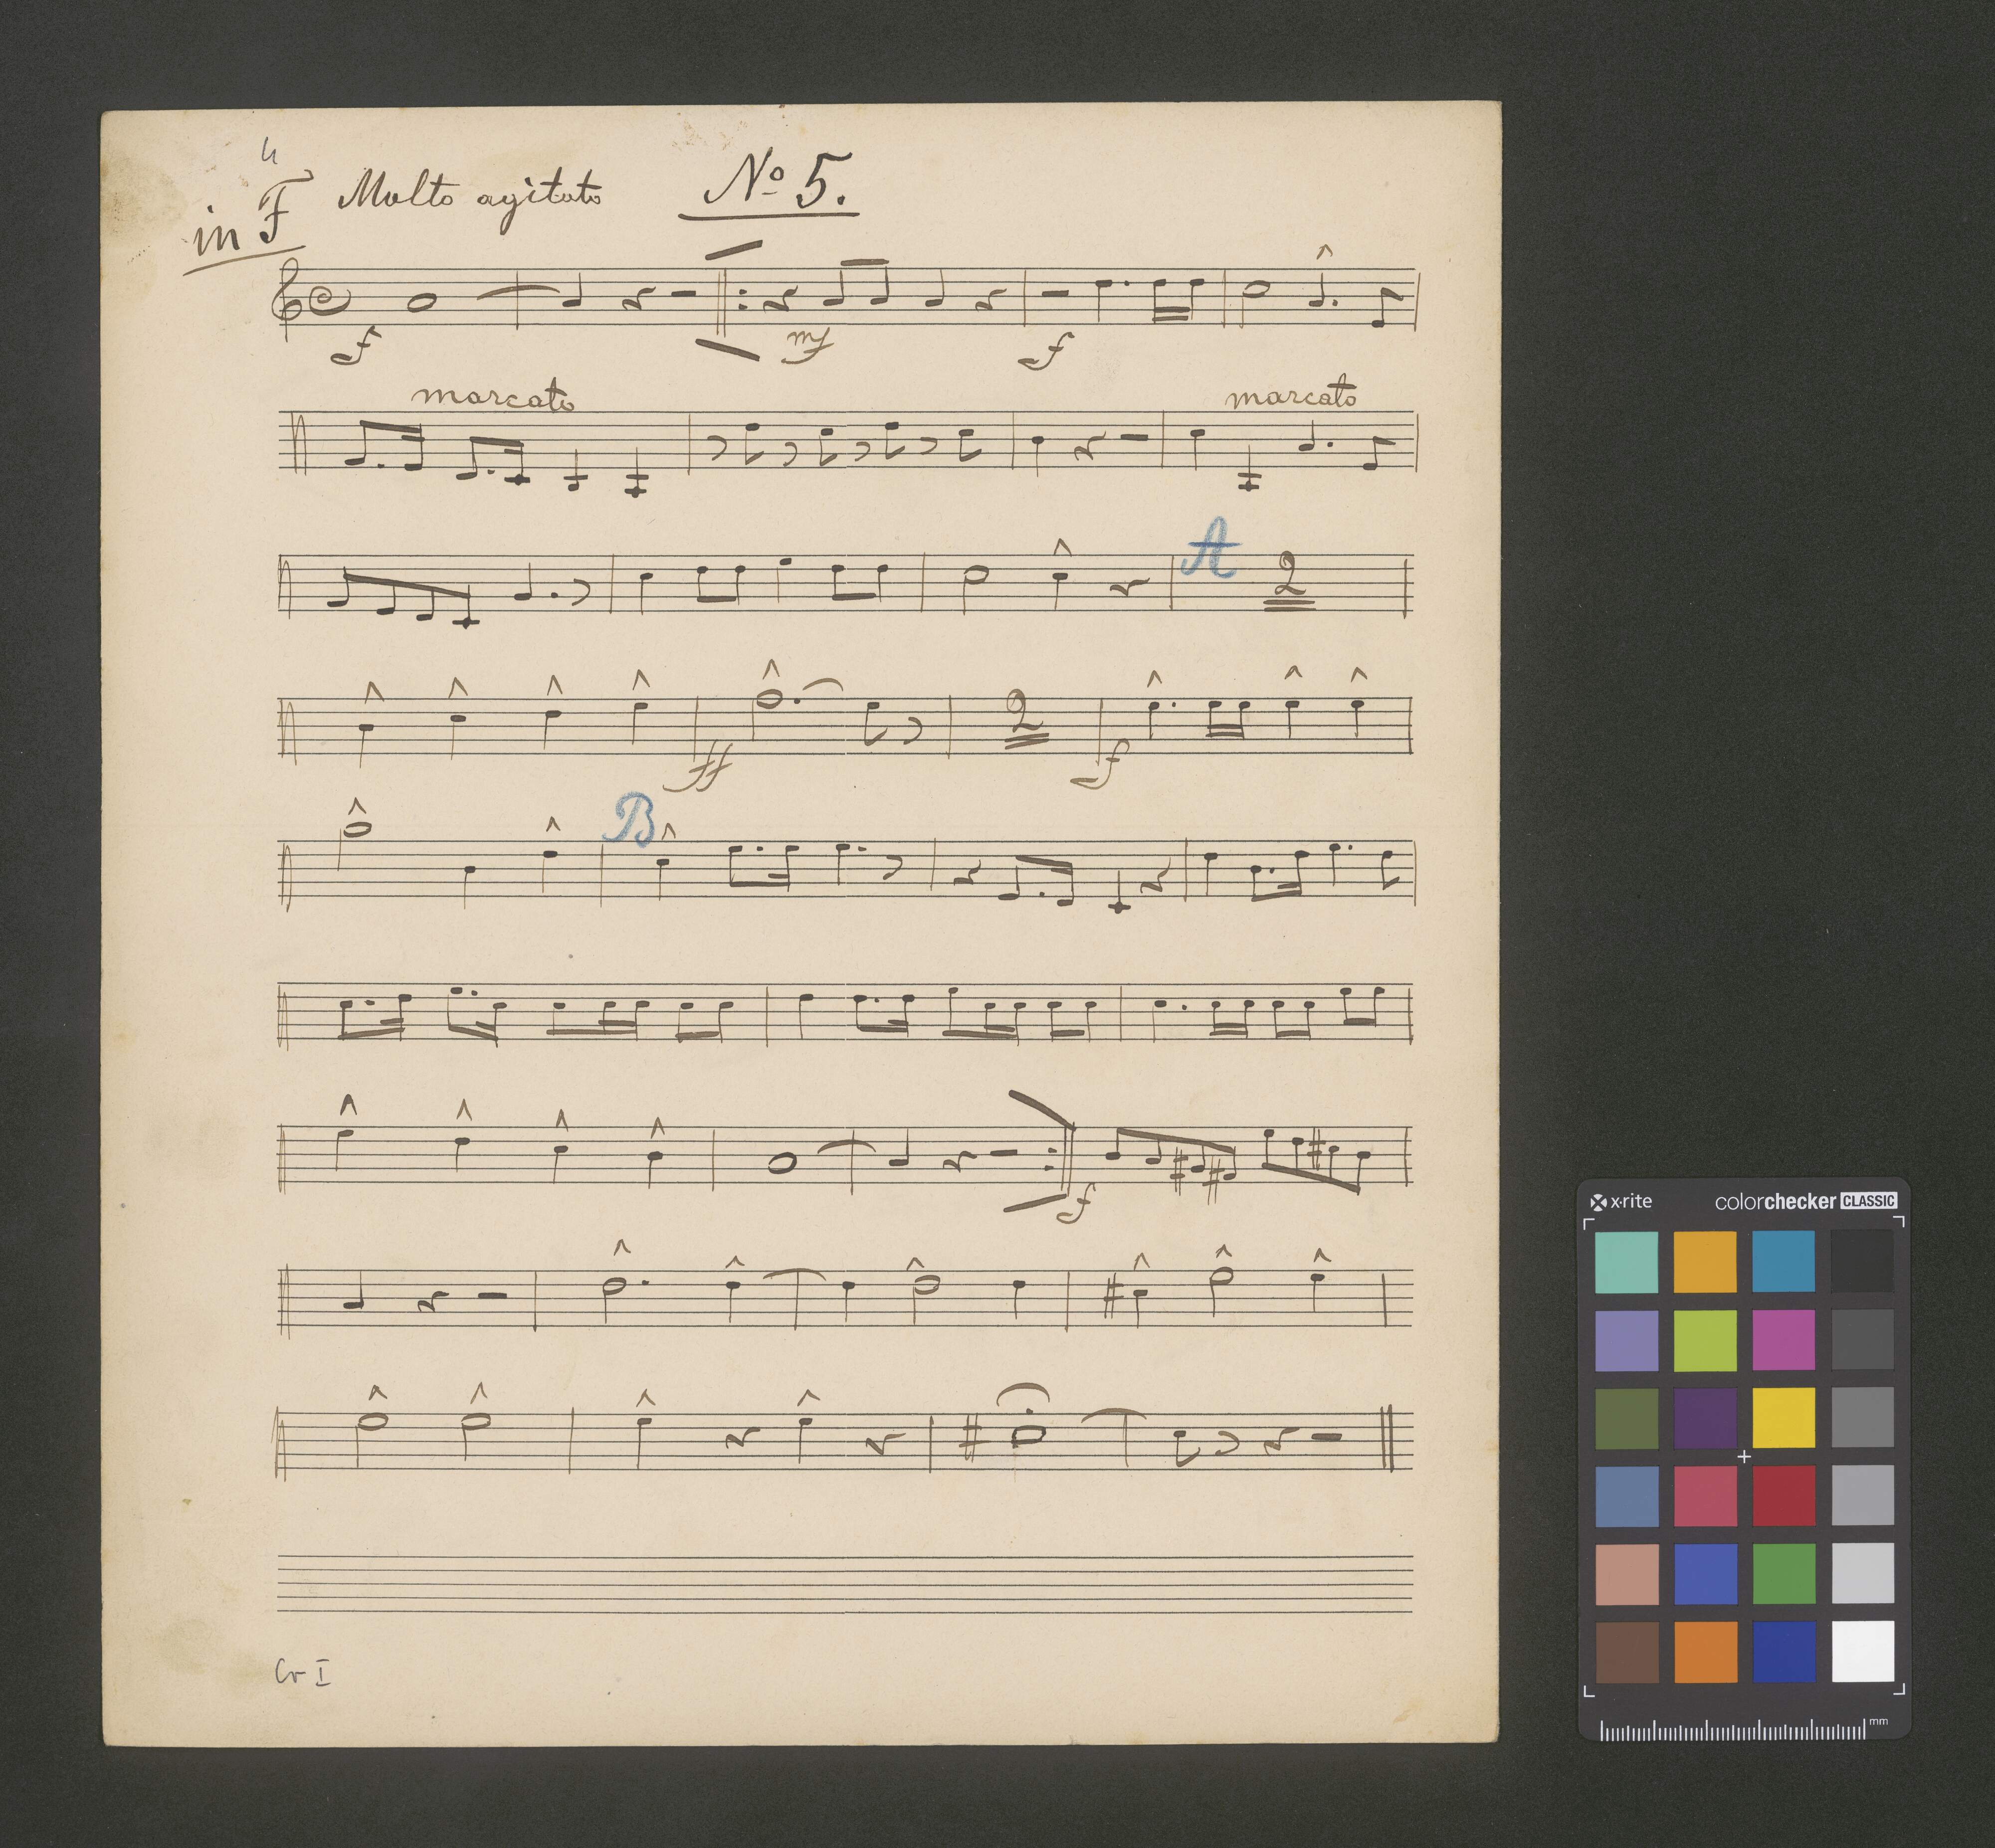 4
in F Molto agitato No 5.
f mf f
marcato marcato
A 2
ff 2 f
B
f
Cr I
x·rite colorchecker CLASSIC
mm